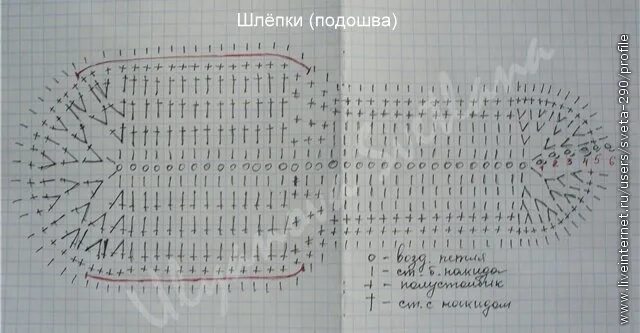 Шлёпки (подошва)
1 2 3 4 5 6
о - возд. петля
| - ст. б. накида
+ - полустолбик
† - ст. с накидом
www.liveinternet.ru/users/sveta-290/profile